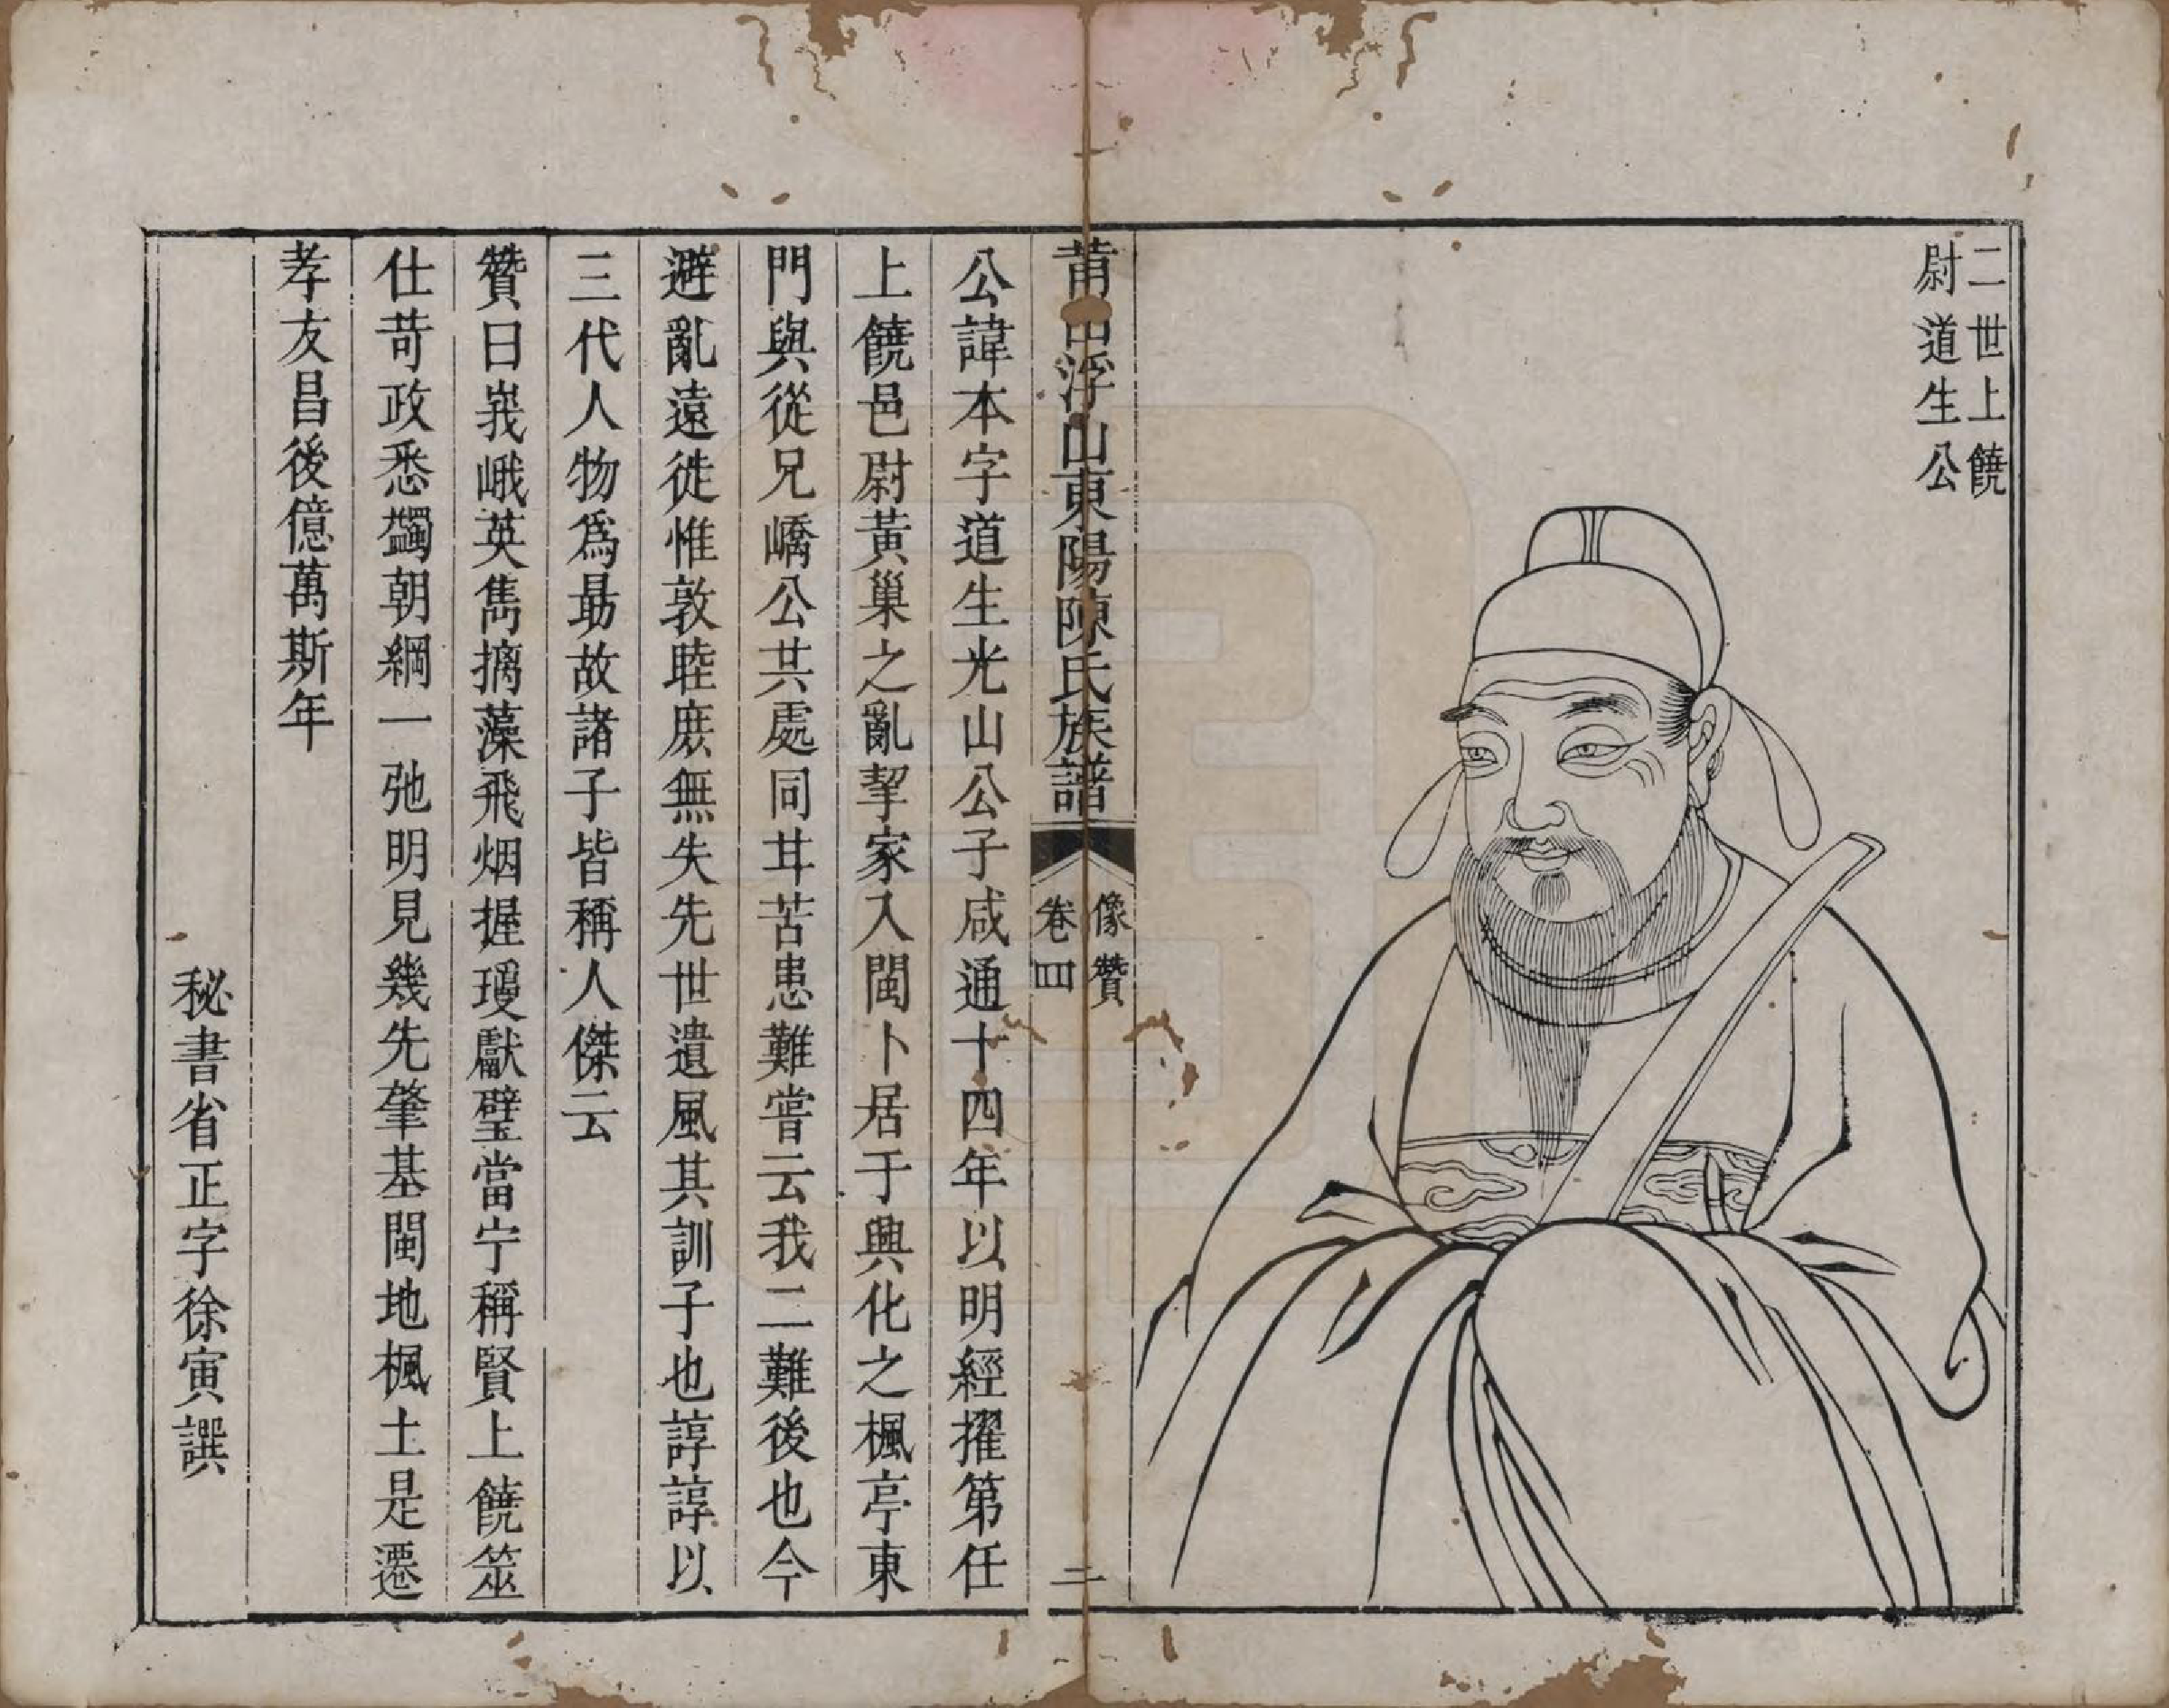 二世上饒
尉道生公
莆田浮山東陽陳氏族譜
像贊
卷四
二
公諱本字道生光山公子咸通十四年以明經擢第任
上饒邑尉黃巢之亂挈家入閩卜居于興化之楓亭東
門與從兄嶠公共處同甘苦患難嘗云我二難後也今
避亂遠徙惟敦睦庶無失先世遺風其訓子也諄諄以
三代人物爲最故諸子皆稱人傑云
贊曰峩峨英雋摛藻飛烟握瑷獻璧當宁稱賢上饒筮
仕苛政悉蠲朝綱一弛明見幾先肇基閩地楓土是遷
孝友昌後億萬斯年
秘書省正字徐寅譔